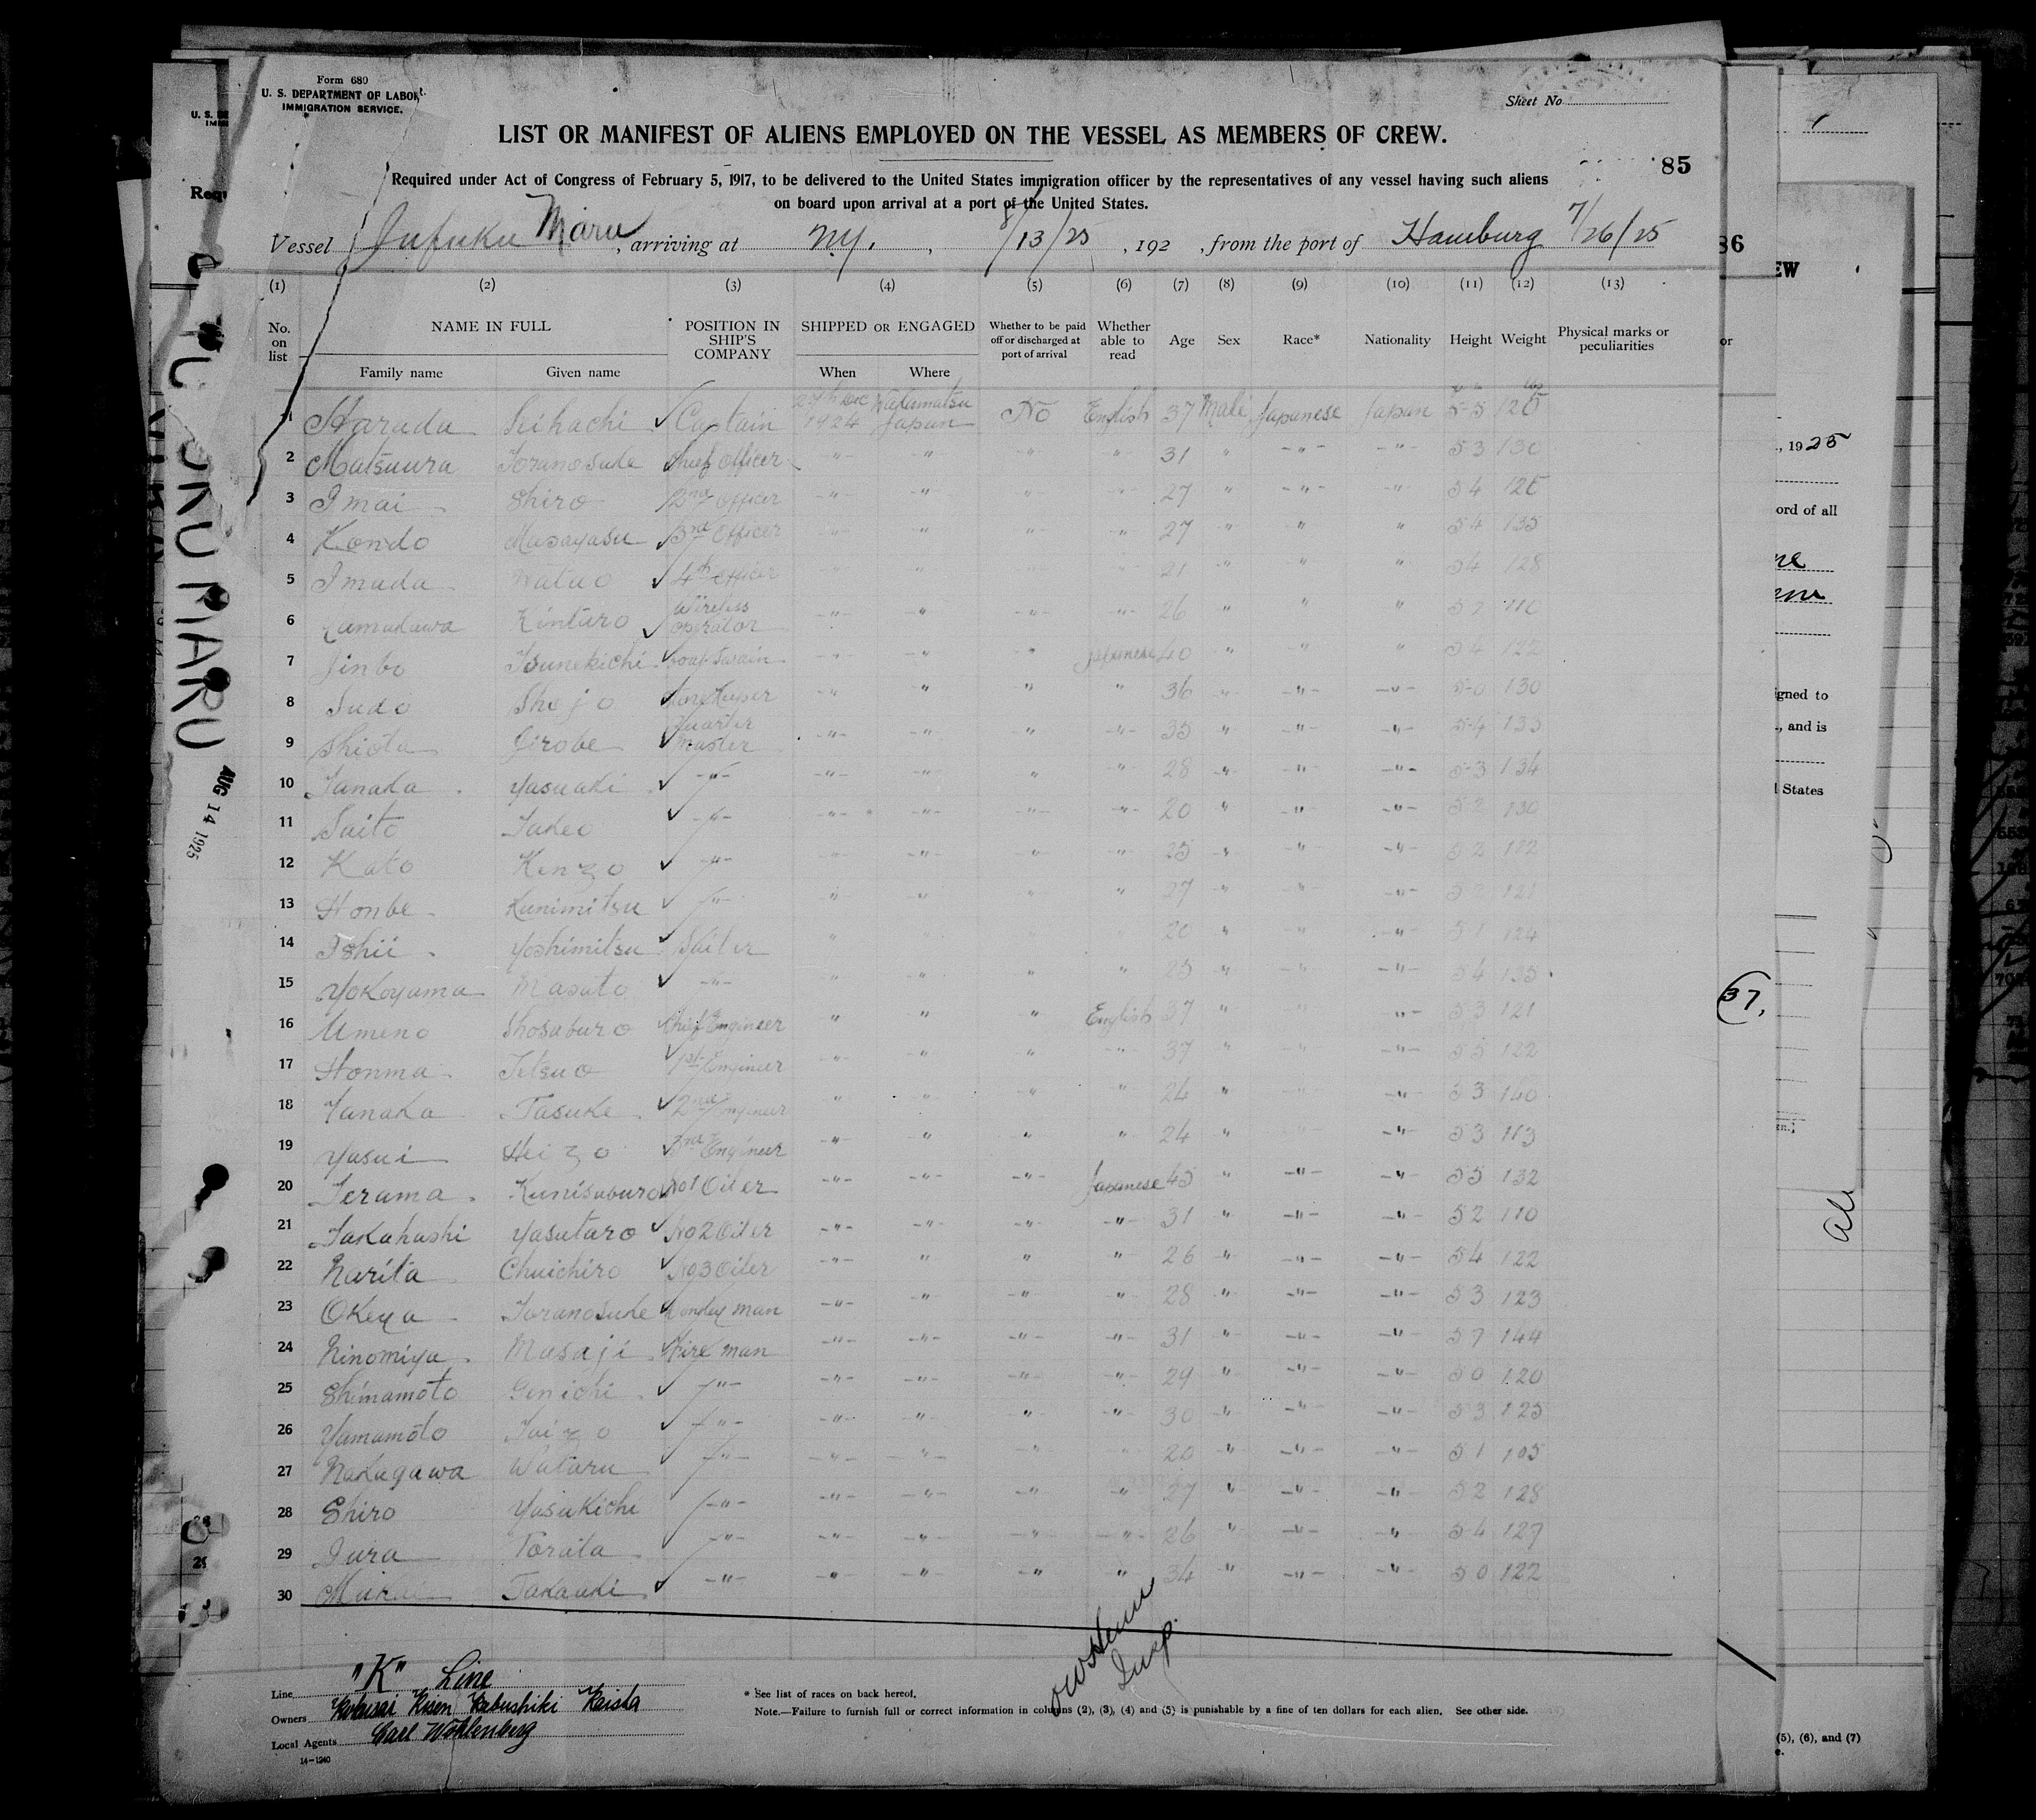 Form 680
U. S. DEPARTMENT OF LABOR
IMMIGRATION SERVICE.
Sheet No
LIST OR MANIFEST OF ALIENS EMPLOYED ON THE VESSEL AS MEMBERS OF CREW.
85
Required under Act of Congress of February 5, 1917, to be delivered to the United States immigration officer by the representatives of any vessel having such aliens
on board upon arrival at a port of the United States.
Vessel Jufuku Maru, arriving at N.Y., 8/13/25, 192 , from the port of Hamburg 7/26/25
(1) (2) (3) (4) (5) (6) (7) (8) (9) (10) (11) (12) (13)
No. on list NAME IN FULL POSITION IN SHIP'S COMPANY SHIPPED OR ENGAGED Whether to be paid off or discharged at port of arrival Whether able to read Age Sex Race* Nationality Height Weight Physical marks or peculiarities
Family name Given name When Where
1 Harada Seihachi ✓ Captain 1924 Wakamatsu Japan No English 37 Male Japanese Japan 5-5 125
2 Matsuura Toranosuke Chief Officer " " " " 31 " " " 5 3 130
3 Imai Shiro 2nd Officer " " " " 27 " " " 5 4 125
4 Kondo Masayasu 3rd Officer " " " " 27 " " " 5 4 135
5 Imada Watao ✓ 4th Officer " " " " 21 " " " 5 4 128
6 Kintaro ✓ Wireless operator " " " " 26 " " " 5 2 110
7 Jinbo Tsunekichi ✓ Boatswain " " " Japanese 40 " " " 5 4 122
8 Sudo Shojo ✓ Storekeeper " " " " 36 " " " 5-0 130
9 Shiota Jirobe ✓ Quarter master " " " " 35 " " " 5-4 135
10 Tanaka Yasuaki ✓ " " " " " 28 " " " 5-3 134
11 Saito Takeo ✓ " " " " " 20 " " " 5 2 130
12 Kato Kenzo ✓ " " " " " 25 " " " 5 2 132
13 Honbe Kunimitsu ✓ " " " " " 27 " " " 5 2 121
14 Ishii Yoshimitsu ✓ Sailer " " " " 20 " " " 5 1 124
15 Yokoyama Masato ✓ " " " " " 25 " " " 5 4 135
16 Umeno Shosaburo ✓ Chief Engineer " " " English 37 " " " 5 3 121
17 Honma Tetsuo ✓ 1st Engineer " " " " 37 " " " 5 5 122
18 Tanaka Tasuke ✓ 2nd Engineer " " " " 24 " " " 5 3 140
19 Yasui Heizo ✓ 3rd Engineer " " " " 24 " " " 5 3 113
20 Terama Kunisaburo ✓ No1 Oiler " " " Japanese 45 " " " 5 5 132
21 Takahashi Yasutaro ✓ No2 Oiler " " " " 31 " " " 5 2 110
22 Narita Chuichiro ✓ No3 Oiler " " " " 26 " " " 5 4 122
23 Okeya Toranosuke ✓ Donkey man " " " " 28 " " " 5 3 123
24 Ninomiya Masaji ✓ Fire man " " " " 31 " " " 5 7 144
25 Shimamoto Genichi ✓ " " " " " 29 " " " 5 0 120
26 Yamamoto Taizo ✓ " " " " " 30 " " " 5 3 125
27 Nakagawa Wataru ✓ " " " " " 20 " " " 5 1 105
28 Shiro Yasukichi " " " " " 27 " " " 5 2 128
29 Iura Torata " " " " " 26 " " " 5 4 127
30 Mukai Takaaki ✓ " " " " " 34 " " " 5 0 122
Insp.
Line "K" Line
Owners Kokusai Kisen Kabushiki Kaisha
Local Agents Carl Wohlenberg
14—1240
* See list of races on back hereof.
Note.—Failure to furnish full or correct information in columns (2), (3), (4) and (5) is punishable by a fine of ten dollars for each alien. See other side.
FUKU MARU
AUG 14 1925
86
EW
or
, 1925
ord of all
igned to
, and is
States
37.
(5), (6), and (7)